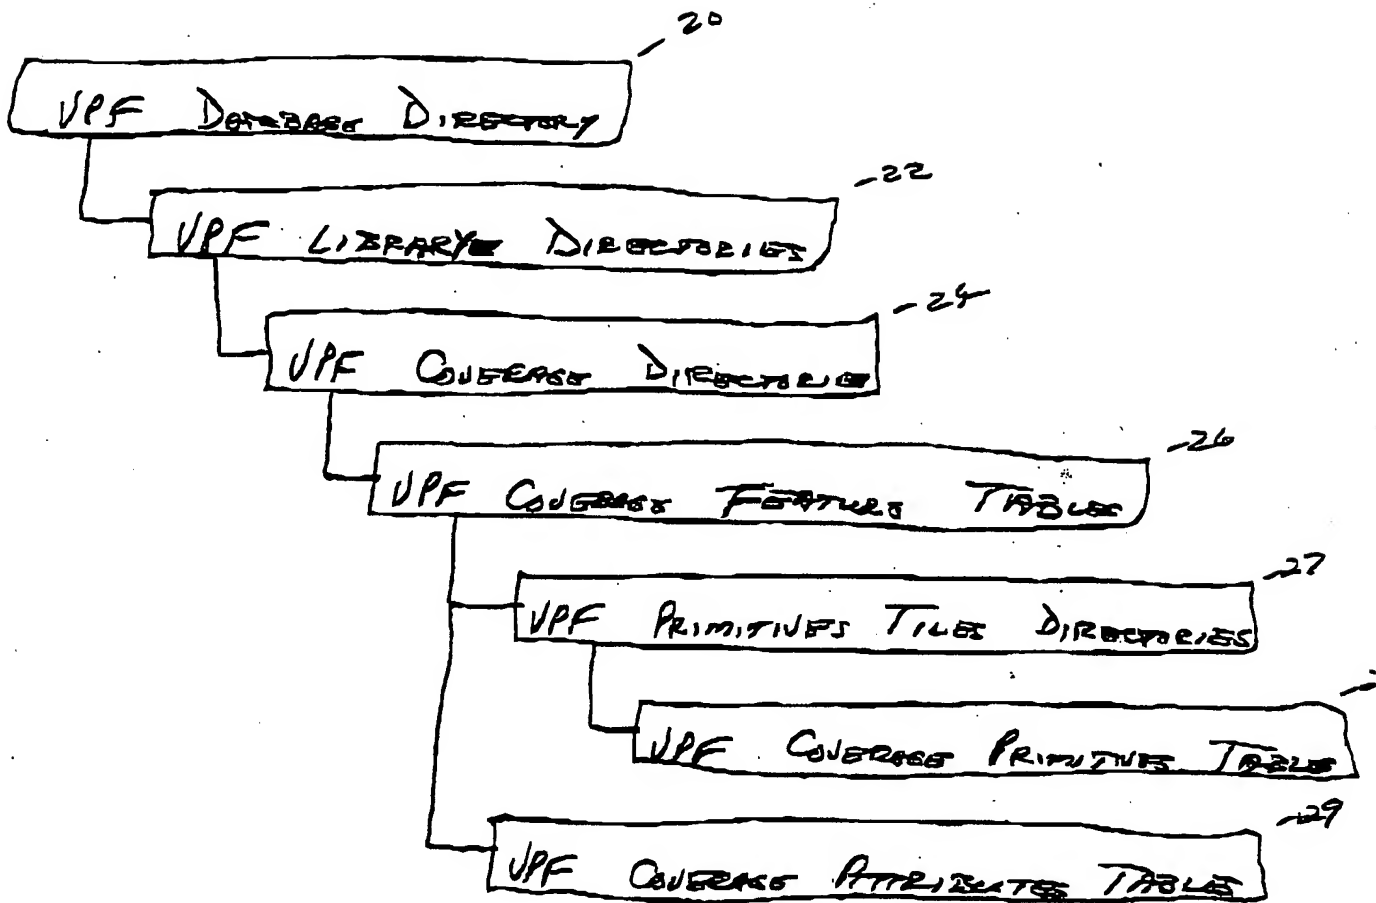 20
VPF DATABASE DIRECTORY
22
VPF LIBRARY DIRECTORIES
24
VPF COVERAGE DIRECTORIES
26
VPF COVERAGE FEATURE TABLES
27
VPF PRIMITIVES TILES DIRECTORIES
VPF COVERAGE PRIMITIVES TABLES
29
VPF COVERAGE ATTRIBUTES TABLES